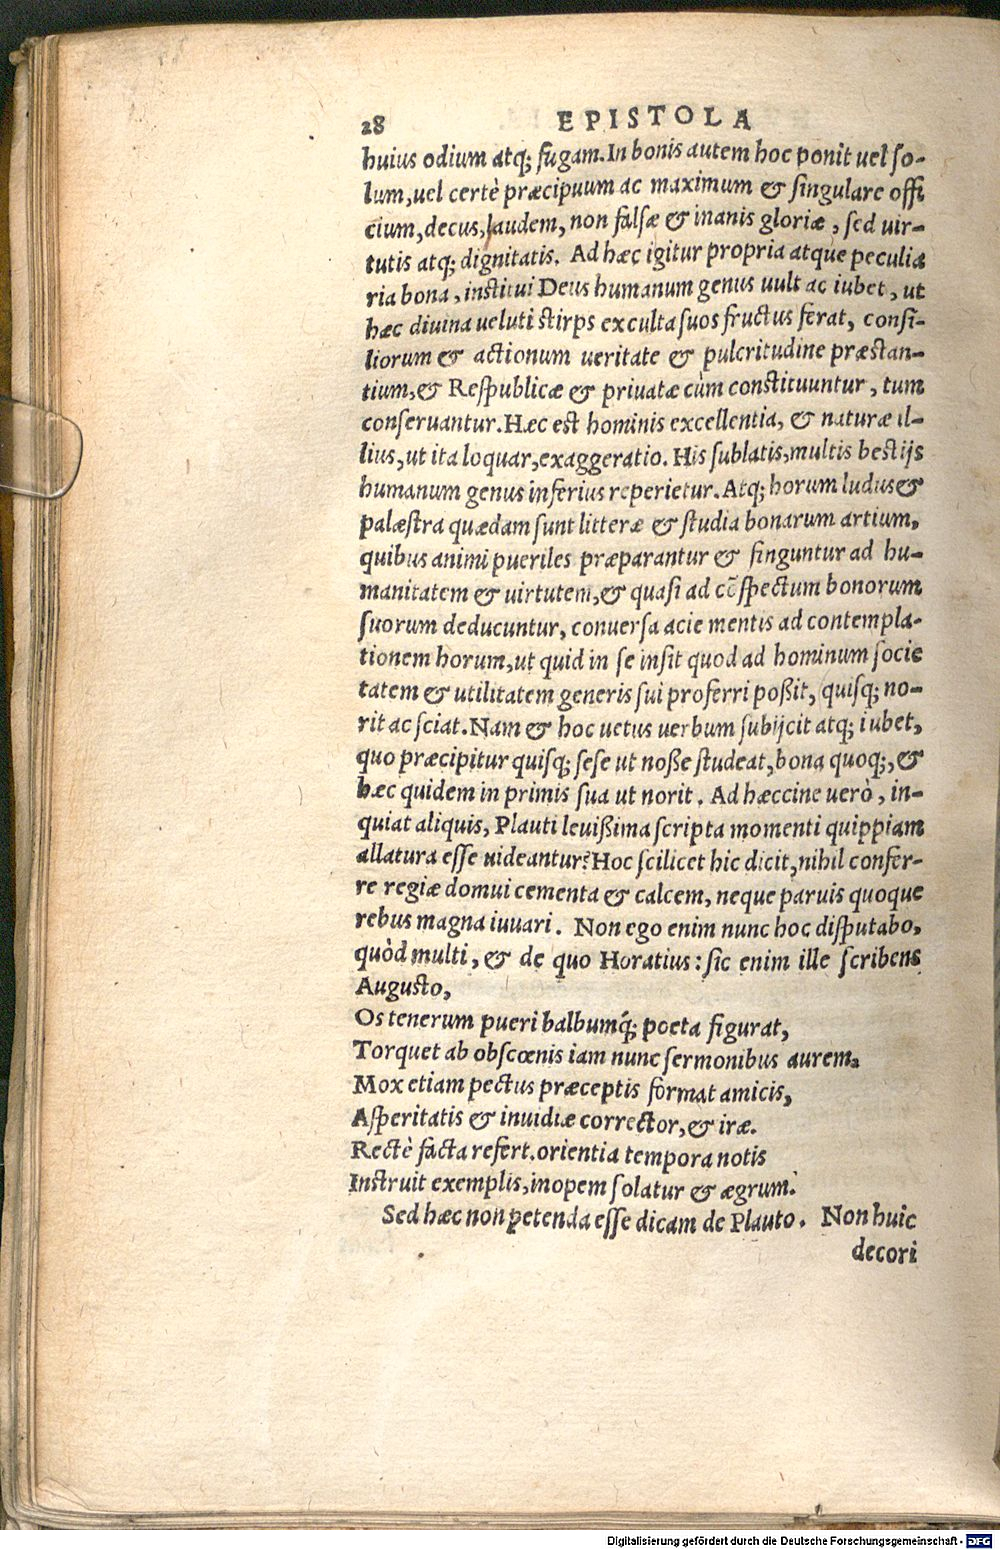 28 EPISTOLA
huius odium atq; fugam. In bonis autem hoc ponit uel so-
lum, uel certè præcipuum ac maximum & singulare offi
cium, decus, laudem, non falsæ & inanis gloriæ, sed uir-
tutis atq; dignitatis. Ad hæc igitur propria atque peculia
ria bona, institui Deus humanum genus uult ac iubet, ut
hæc diuina ueluti stirps exculta suos fructus ferat, consi-
liorum & actionum ueritate & pulcritudine præstan-
tium, & Respublicæ & priuatæ cùm constituuntur, tum
conseruantur. Hæc est hominis excellentia, & naturæ il-
lius, ut ita loquar, exaggeratio. His sublatis, multis bestijs
humanum genus inferius reperietur. Atq; horum ludus &
palæstra quædam sunt litteræ & studia bonarum artium,
quibus animi pueriles præparantur & finguntur ad hu-
manitatem & uirtutem, & quasi ad cōspectum bonorum
suorum deducuntur, conuersa acie mentis ad contempla-
tionem horum, ut quid in se insit quod ad hominum socie
tatem & utilitatem generis sui proferri poßit, quisq; no-
rit ac sciat. Nam & hoc uetus uerbum subijcit atq; iubet,
quo præcipitur quisq; sese ut noße studeat, bona quoq;, &
hæc quidem in primis sua ut norit. Ad hæccine uerò, in-
quiat aliquis, Plauti leuißima scripta momenti quippiam
allatura esse uideantur? Hoc scilicet hic dicit, nihil confer-
re regiæ domui cementa & calcem, neque paruis quoque
rebus magna iuuari. Non ego enim nunc hoc disputabo,
quòd multi, & de quo Horatius: sic enim ille scribens
Augusto,
Os tenerum pueri balbumq́; poeta figurat,
Torquet ab obscœnis iam nunc sermonibus aurem.
Mox etiam pectus præceptis format amicis,
Asperitatis & inuidiæ corrector, & iræ.
Rectè facta refert. orientia tempora notis
Instruit exemplis, inopem solatur & ægrum.
Sed hæc non petenda esse dicam de Plauto. Non huic
decori
Digitalisierung gefördert durch die Deutsche Forschungsgemeinschaft - DFG